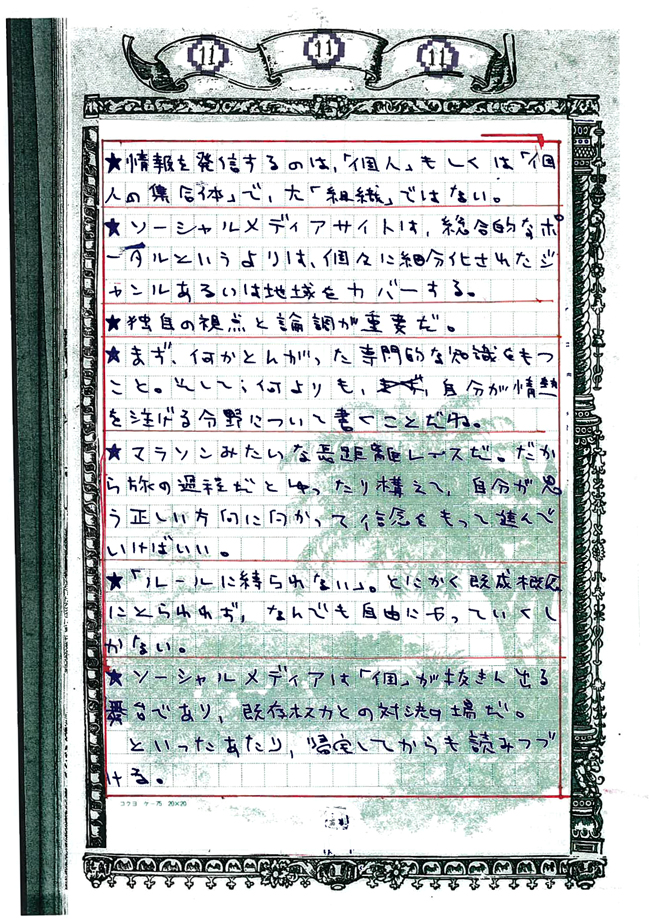 11 11 11
★情報を発信するのは、「個人」もしくは「個
人の集合体」で、た「組織」ではない。
★ソーシャルメディアサイトは、総合的なポ
ータルというよりは、個々に細分化されたジ
ャンルあるいは地域をカバーする。
★独自の視点と論調が重要だ。
★まず、何かとんがった専門的な知識をもつ
こと。そして、何よりも、自分が情熱
を注げる分野について書くことだね。
★マラソンみたいな長距離レースだ。だか
ら旅の過程だとゆったり構えて、自分が思
う正しい方向に向かって信念をもって進んで
いけばいい。
★「ルールに縛られない」。とにかく既成概念
にとらわれず、なんでも自由にやっていくし
かない。
★ソーシャルメディアは「個」が抜きん出る
舞台であり、既存権力との対決の場だ。
といったあたり、帰宅してからも読みつづ
ける。
コクヨ ケー75 20×20